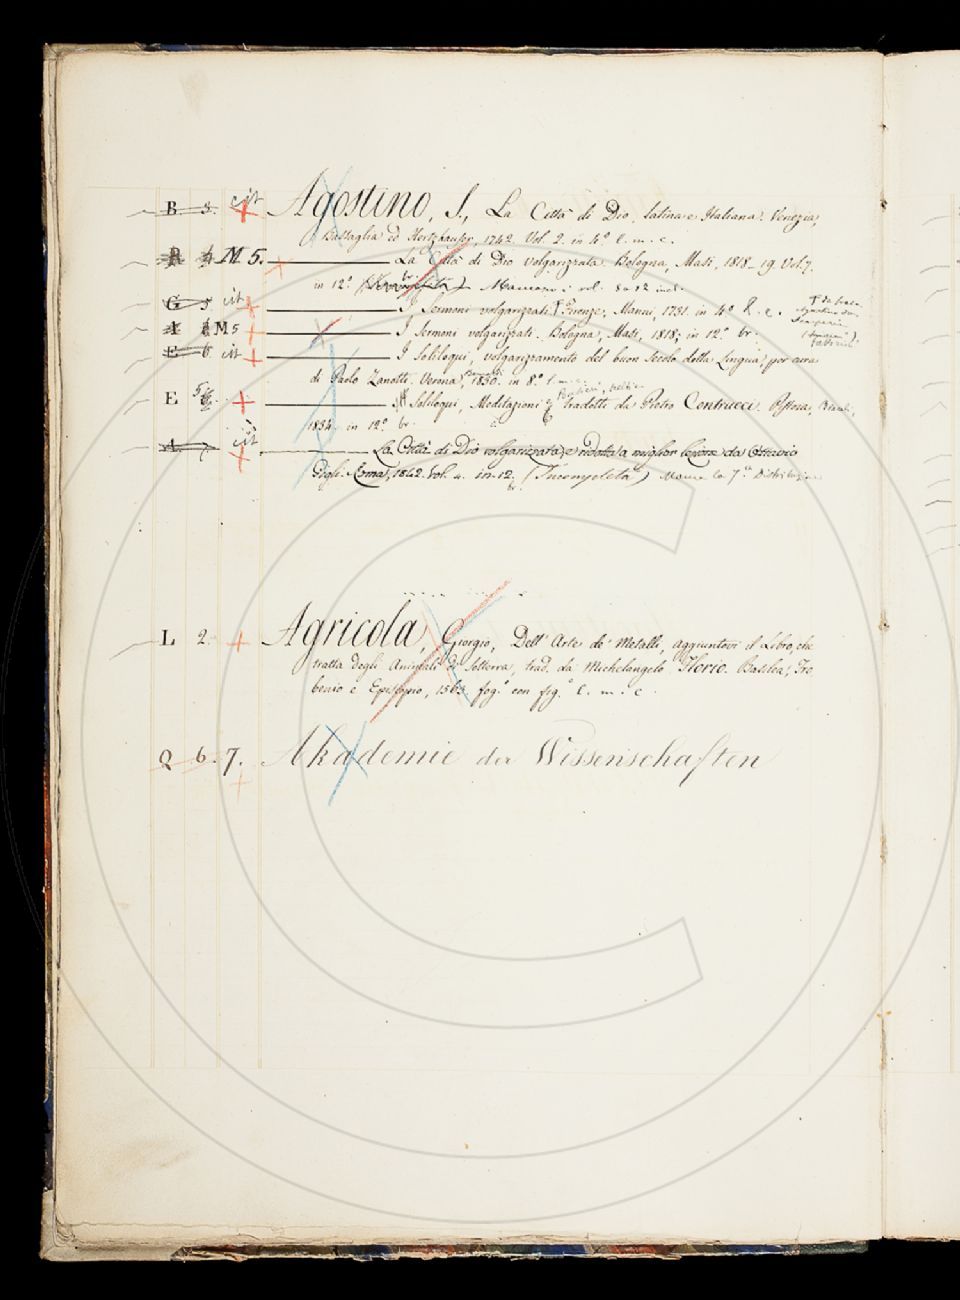 B 5. cit Agostino, S., La Città di Dio, latina e Italiana. Venezia,
Battaglia ed Hertzhauser, 1742. Vol. 2. in 4º. l. m. c.
M 5. La Città di Dio volgarizzata. Bologna, Masi, 1818-19. Vol. 7.
in 12º. br. Mancano i vol. 8 a 12 incl.
G 5 cit I Sermoni volgarizzati. Firenze, Manni, 1731. in 4º
M 5 I Sermoni volgarizzati. Bologna, Masi, 1818; in 12º. br.
E 6 cit I Soliloqui, volgarizzamento del buon secolo della lingua, per cura
di Paolo Zanotti. Verona, 1830. in 8º. l. m. c.
E 5 Soliloqui, Meditazioni tradotti da Pietro Contrucci. Pistoia,
1834. in 12º. br.
A cit La Città di Dio volgarizzata, e ridotta a miglior lezione da Ottavio
Gigli. Roma, 1842. Vol. 4. in 12. br. (Incompleta) Manca la 7.ª Distribuzione
L 2. Agricola, Giorgio, Dell' Arte de' Metalli, aggiuntovi il Libro, che
tratta degli Animali di Sotterra, trad. da Michelangelo Florio. Basilea, Fro
benio e Episcopio, 1563. fog.º con fig.e l. m. c.
Q 6. 7. Akademie der Wissenschaften